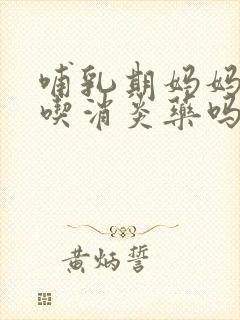 哺乳期妈妈
喫消炎藥吗
黄炳誓